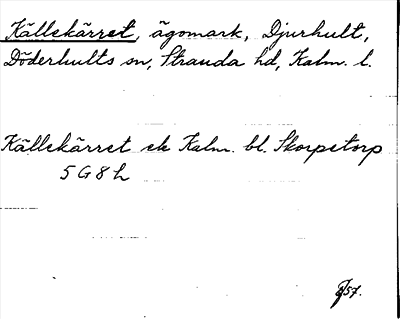 Källekärret, ägomark, Djurhult,
Döderhults sn, Stranda hd, Kalm. l.
Källekärret ek Kalm. bl. Skorpetorp
5 G 8 h
57.